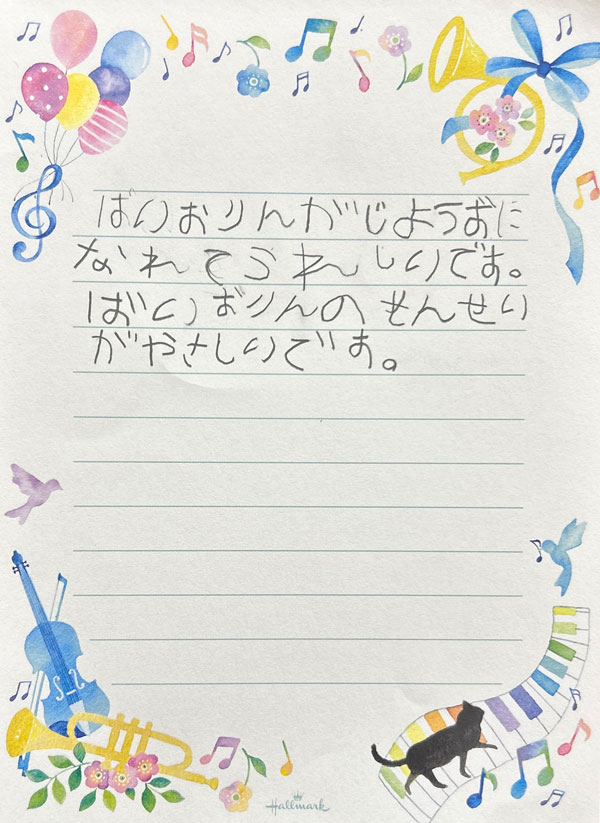 ばいおりんがじようずに
なれてうれしいです。
ばいおりんのせんせい
がやさしいです。
Hallmark